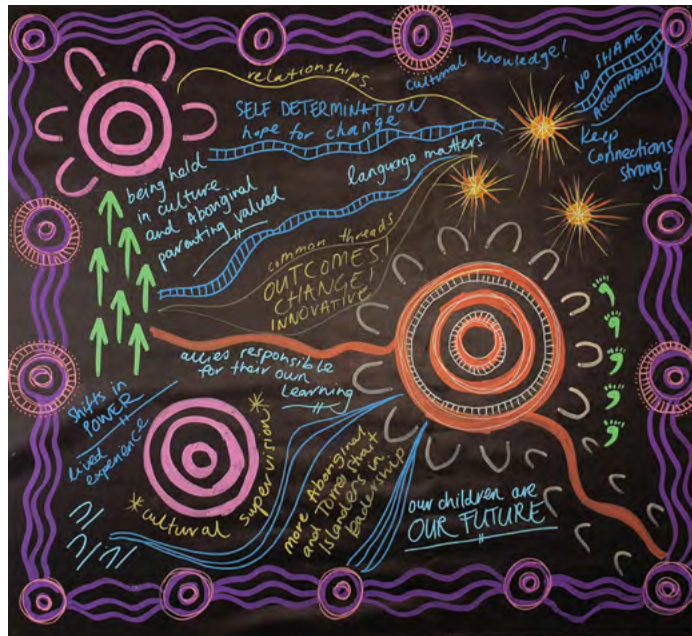 relationships.
cultural knowledge!
NO SHAME
ACCOUNTABILITY
SELF DETERMINATION
hope for change
Keep
Connections
strong.
language matters
being held
in culture
and Aboriginal
parenting valued
common threads
OUTCOMES!
CHANGE!
INNOVATIVE
allies responsible
for their own
learning
Shifts in
POWER
lived
experience
*cultural supervision*
more Aboriginal
and Torres Strait
Islanders in
leadership
our children are
OUR FUTURE